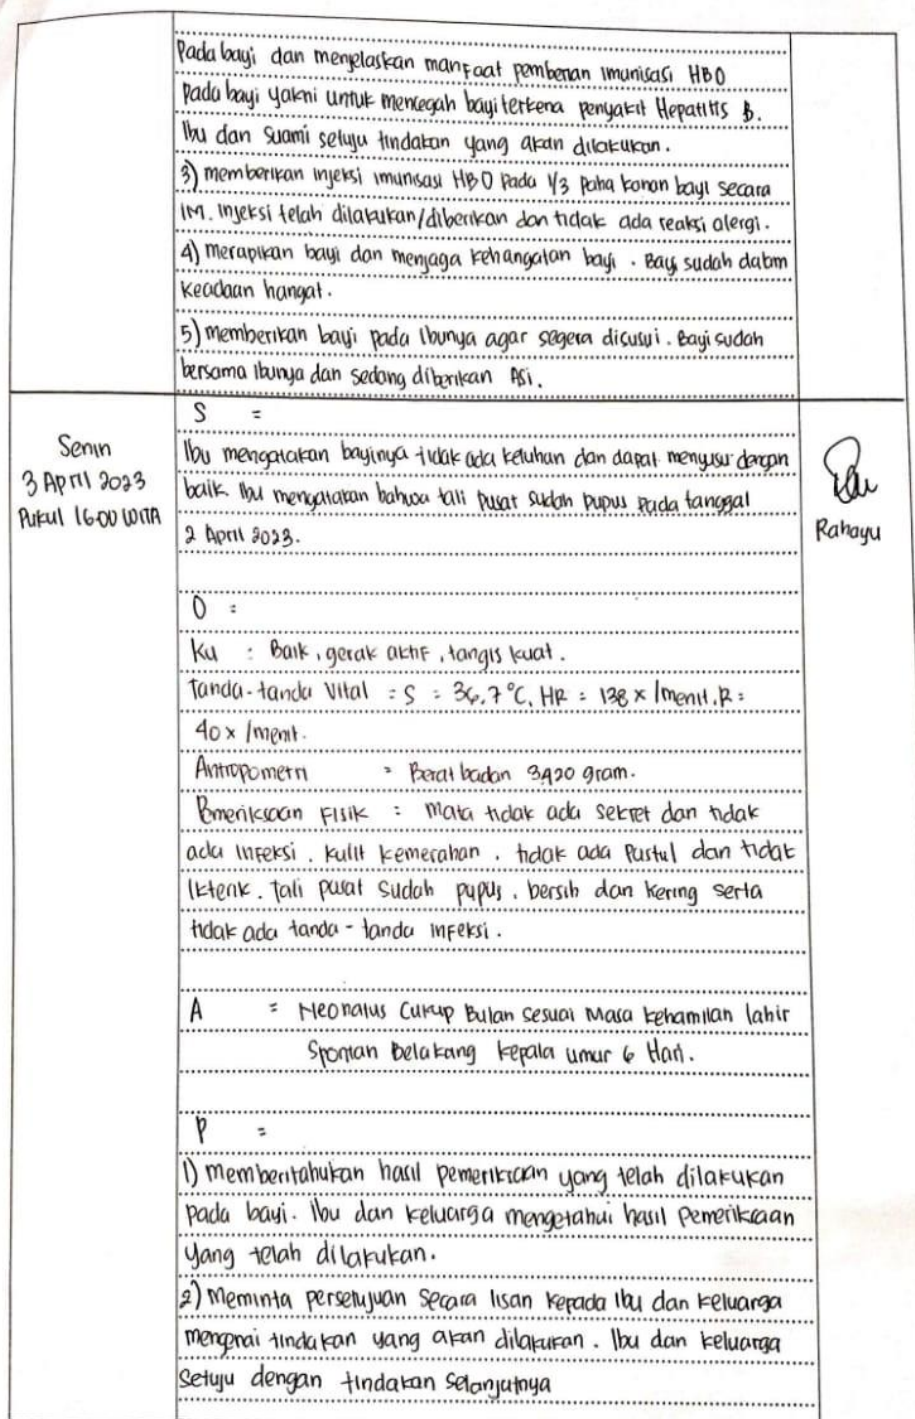 Pada bayi dan menjelaskan manfaat pemberian imunisasi HB0
pada bayi yakni untuk mencegah bayi terkena penyakit Hepatitis B.
Ibu dan suami setuju tindakan yang akan dilakukan.
3) memberikan injeksi imunisasi HB0 pada 1/3 paha kanan bayi secara
IM. Injeksi telah dilakukan/diberikan dan tidak ada reaksi alergi.
4) merapikan bayi dan menjaga kehangatan bayi. Bayi sudah dalam
keadaan hangat.
5) memberikan bayi pada Ibunya agar segera disusui. Bayi sudah
bersama Ibunya dan sedang diberikan ASi.
Senin
3 April 2023
Pukul 16.00 WITA
S =
Ibu mengatakan bayinya tidak ada keluhan dan dapat menyusu dengan
baik. Ibu mengatakan bahwa tali pusat sudah pupus pada tanggal
2 April 2023.
O :
Ku : Baik, gerak aktif, tangis kuat.
Tanda-tanda Vital = S = 36,7 °C, HR = 138 x /menit, R =
40 x /menit.
Antropometri = Berat badan 3420 gram.
Pemeriksaan Fisik : Mata tidak ada sekret dan tidak
ada infeksi. Kulit kemerahan, tidak ada Pustul dan tidak
Ikterik. Tali pusat sudah pupus, bersih dan kering serta
tidak ada tanda-tanda infeksi.
A = Neonatus Cukup Bulan Sesuai Masa kehamilan lahir
Spontan Belakang kepala umur 6 Hari.
P =
1) Memberitahukan hasil pemeriksaan yang telah dilakukan
pada bayi. Ibu dan keluarga mengetahui hasil pemeriksaan
yang telah dilakukan.
2) Meminta persetujuan secara lisan kepada Ibu dan keluarga
mengenai tindakan yang akan dilakukan. Ibu dan keluarga
setuju dengan tindakan selanjutnya
Rahayu